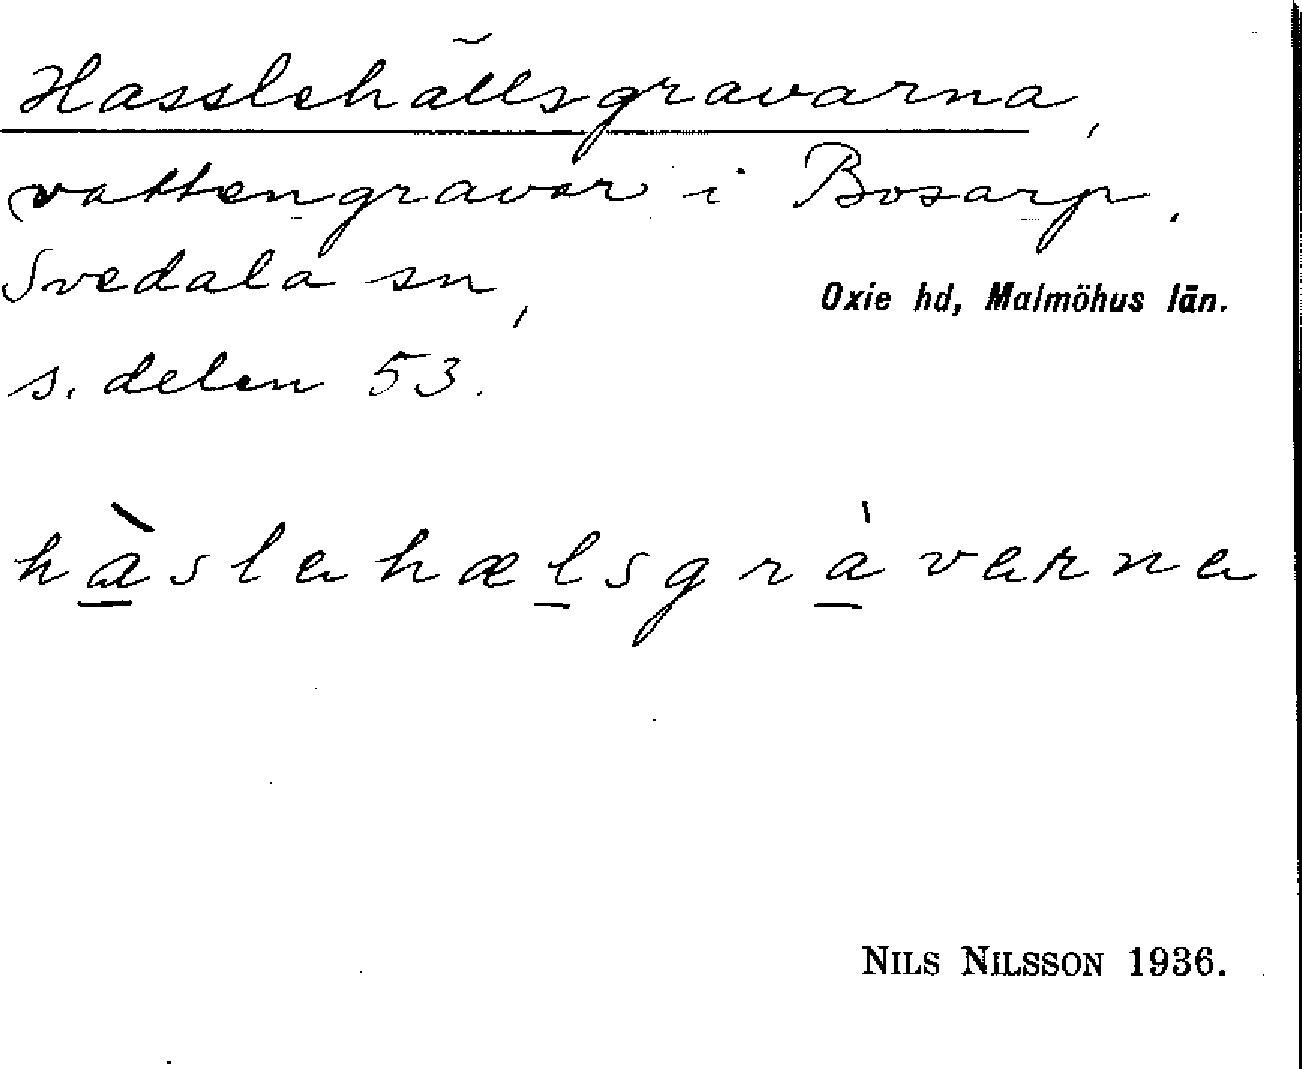 Hasslehällsgravarna,
vattengravar i Bosarp.
Svedala sn,
Oxie hd, Malmöhus län.
s. delen 53.
hàslahælsgràvarna
NILS NILSSON 1936.